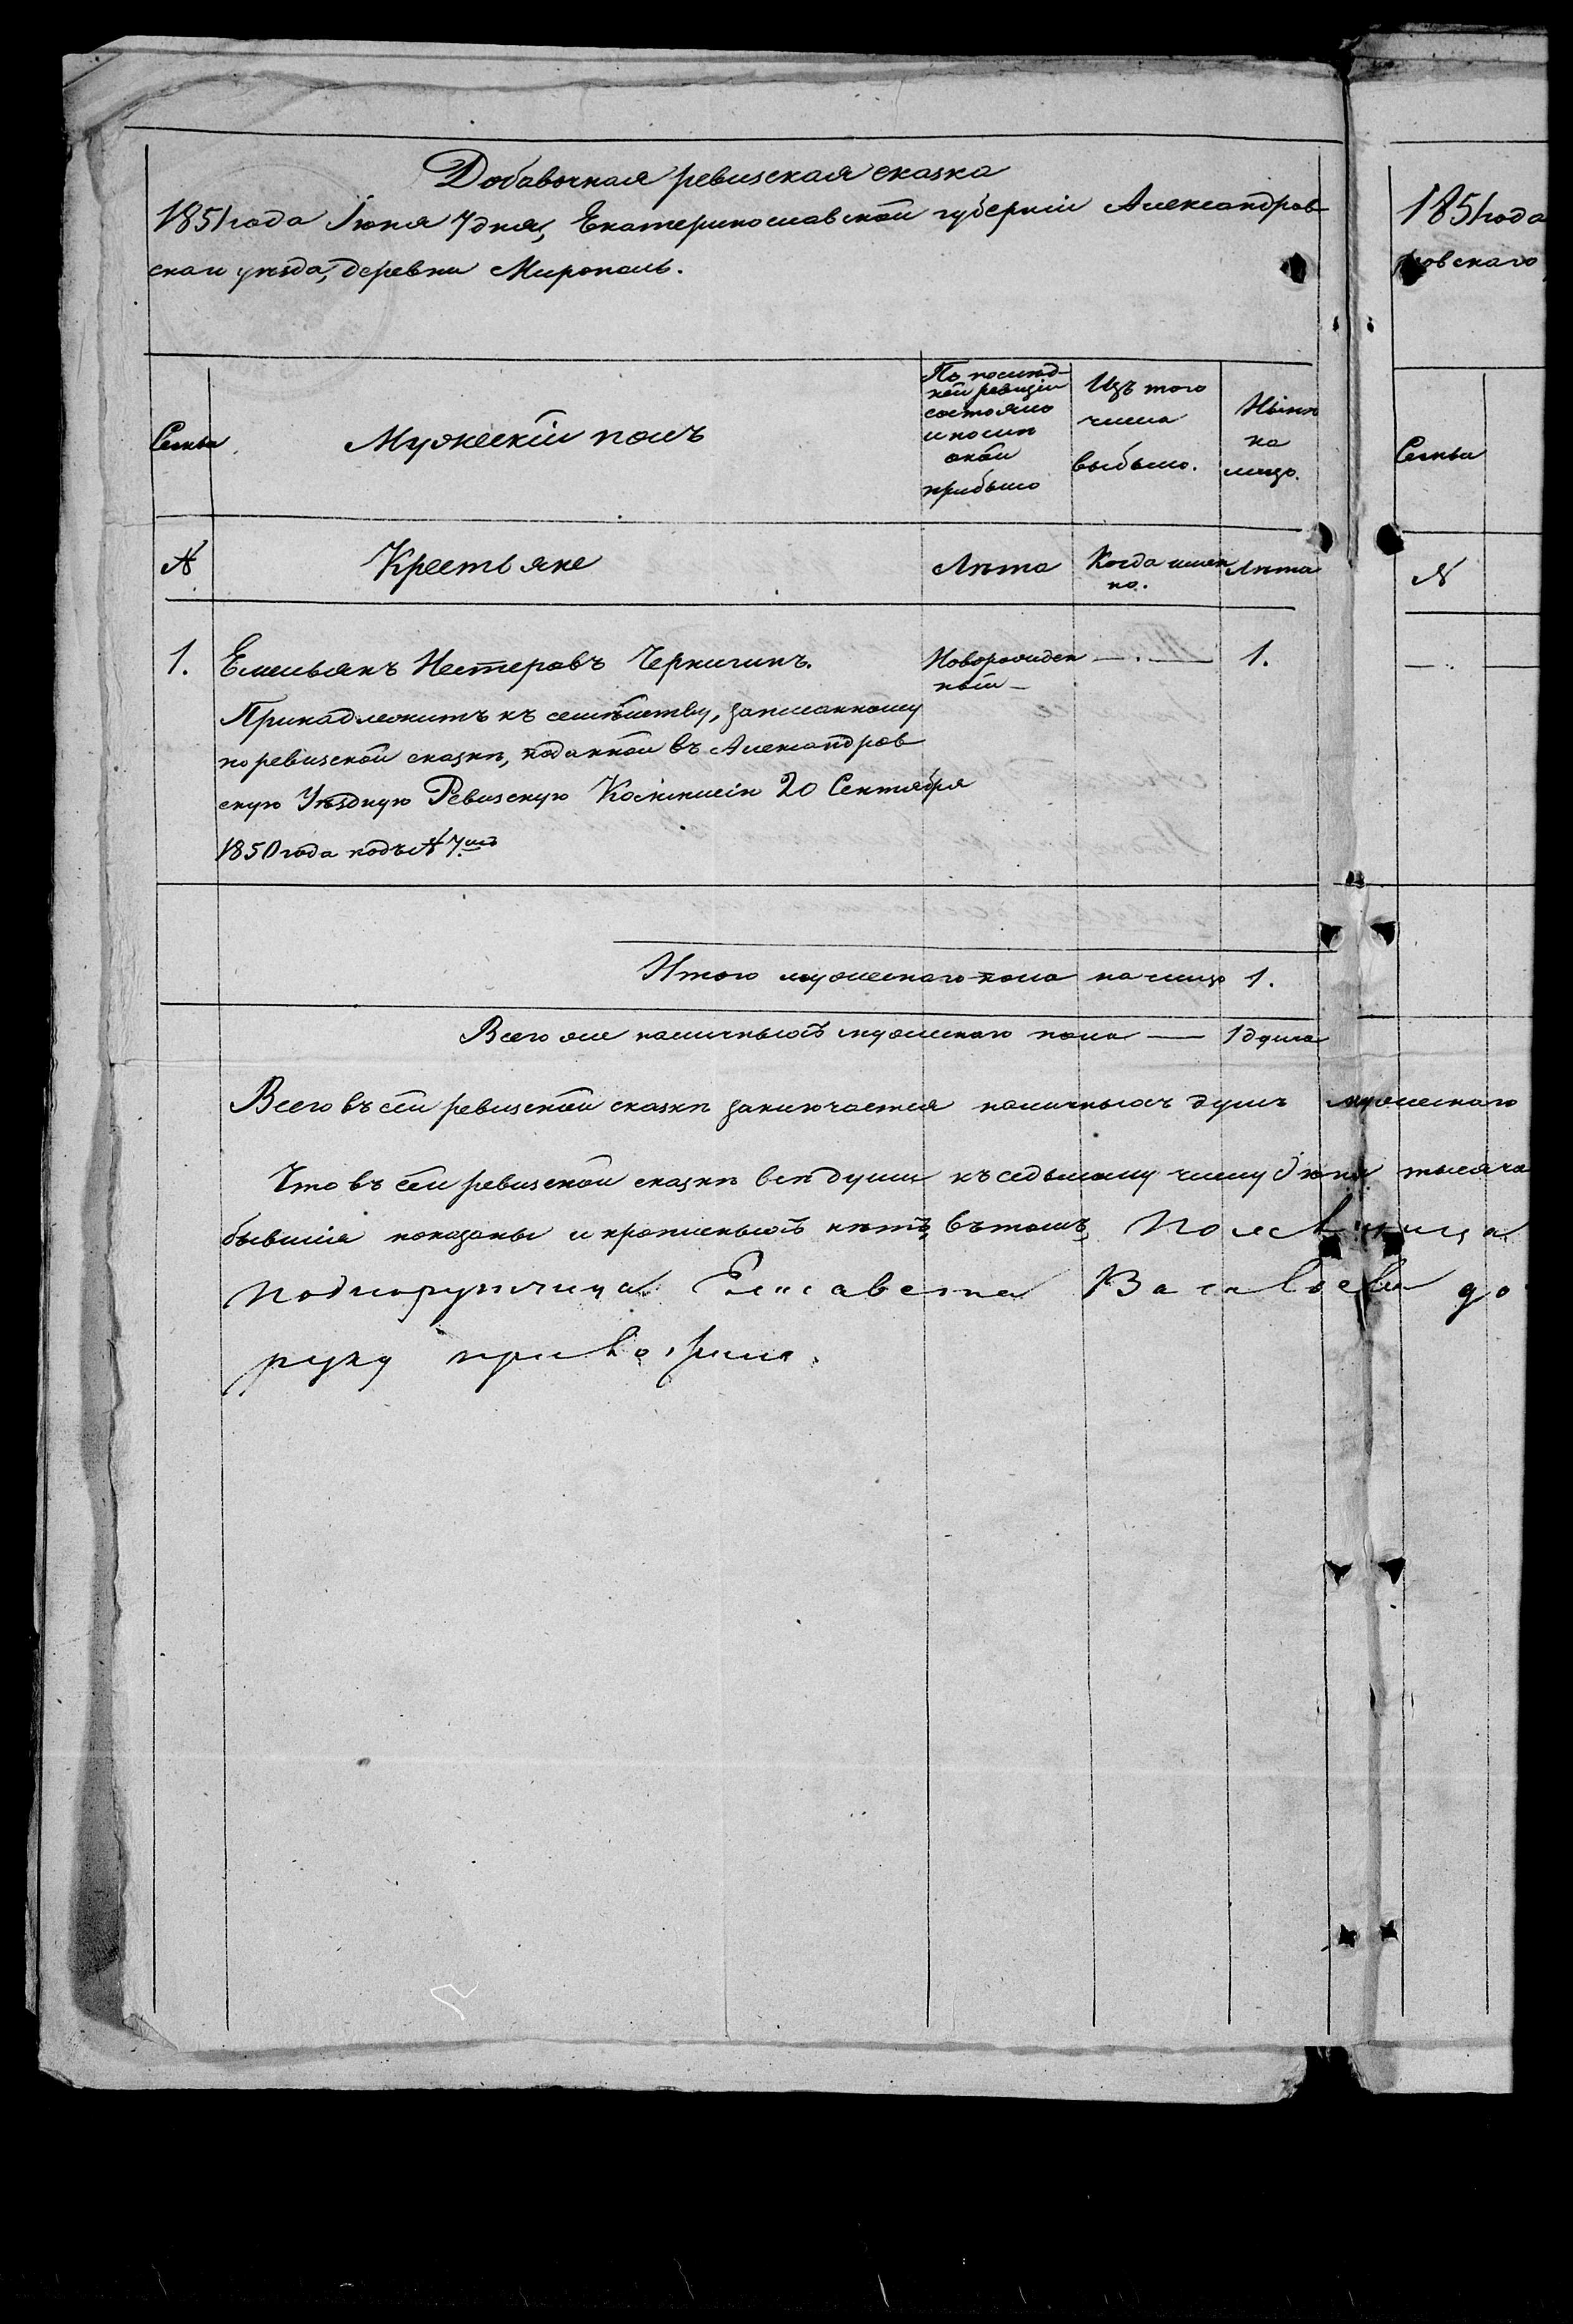 Добавочная ревизская сказка
1851 года Июня 7 дня, Екатеринославской губернiи Александров
скаго уѣзда, деревни Мирополь.
Семьи
Мужескiй полъ
По послѣд-
ней ревизiи
состояло
и послѣ
оной
прибыло
Изъ того
числа
выбыло.
Нынѣ
на
лицо.
№
Крестьяне
Лѣта
Когда имен
но.
Лѣта
1. Емельянъ Нестеровъ
Новорожден — . — 1.
ный —
Принадлежитъ къ семѣйству, записанному
по ревизской сказкѣ, поданной въ Александров
скую Уѣздную Ревизскую Комиссiю 20 Сентября
1850 года подъ № 7мъ
Итого мужескаго пола на лицо 1.
Всего же наличныхъ мужескаго пола — 1 душа
Всего въ сей ревизской сказкѣ заключается наличныхъ душъ мужескаго
Что въ сей ревизской сказкѣ всѣ души къ седьмому числу Июня тысяча
бывшiя показаны и прописныхъ нѣтъ, въ томъ,
подпоручица Елисавета
руку приложила.
1851 года
ровскаго
Семьи
№